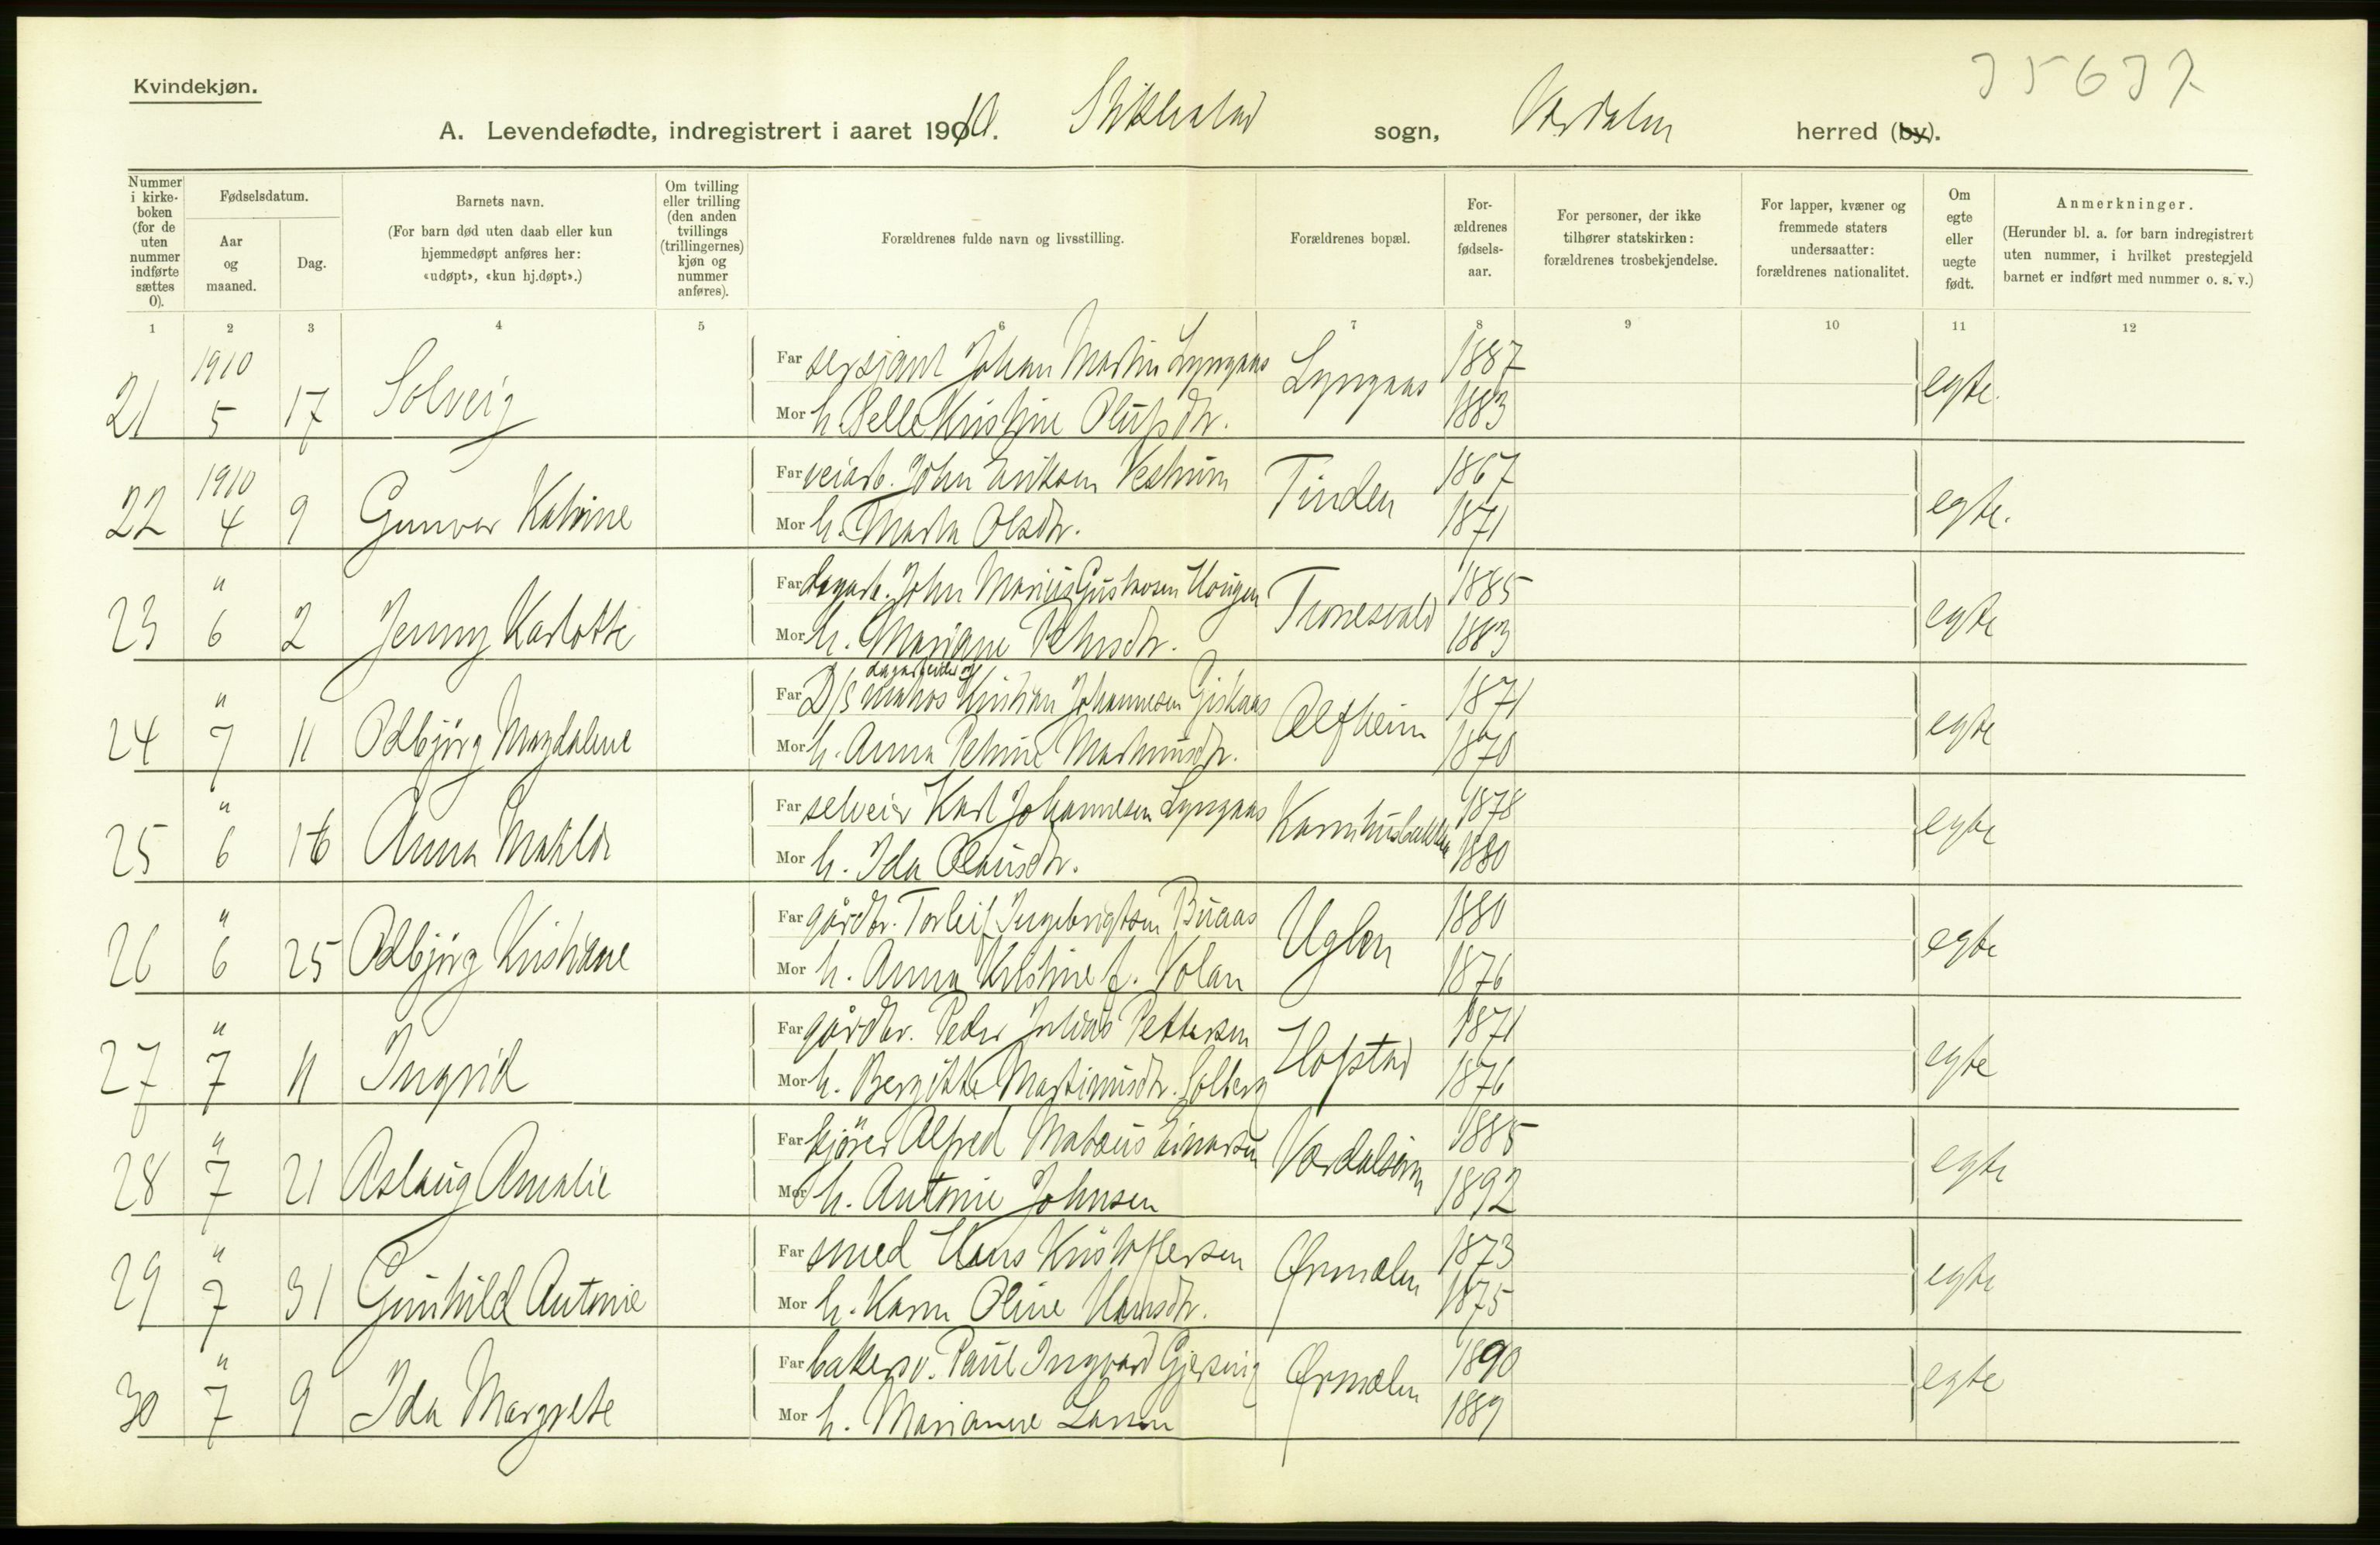 Kvindekjøn.
35637
A. Levendefødte, indregistrert i aaret 1910. Stiklestad sogn, Værdalen herred (by).
Nummer i kirkeboken (for de uten nummer indførte sættes 0).
Fødselsdatum.
Aar og maaned.
Dag.
Barnets navn.
(For barn død uten daab eller kun hjemmedøpt anføres her: «udøpt», «kun hj.døpt».)
Om tvilling eller trilling (den anden tvillings (trillingernes) kjøn og nummer anføres).
Forældrenes fulde navn og livsstilling.
Forældrenes bopæl.
Forældrenes fødselsaar.
For personer, der ikke tilhører statskirken: forældrenes trosbekjendelse.
For lapper, kvæner og fremmede staters undersaatter: forældrenes nationalitet.
Om egte eller uegte født.
Anmerkninger.
(Herunder bl. a. for barn indregistrert uten nummer, i hvilket prestegjeld barnet er indført med nummer o. s. v.)
1 2 3 4 5 6 7 8 9 10 11 12
21 1910 5 17 Solveig Far sersjant Johan Martin Lyngaas Lyngaas 1887 egte.
Mor h. Pelle Kristine Olufsdtr. 1883
22 1910 4 9 Gunvor Katrine Far veiarb. John Eriksen Vestrum Tinden 1867 egte.
Mor h. Marta Olsdtr. 1871
23 " 6 2 Jenny Karlotte Far dagarb. John Marius Gustavsen Haugen Tronesvald 1885 egte
Mor h. Mariane Petersdtr. 1883
24 " 7 11 Odbjörg Magdalene Far D/S dagarbeider og Kristian Johannesen Giskaas Alfheim 1871 egte
Mor h. Anna Petrine Martinusdtr. 1870
25 " 6 16 Anna Matilde Far selveier Karl Johannesen Lyngaas Kornhusbakken 1878 egte
Mor h. Ida Olausdtr. 1880
26 " 6 25 Odbjörg Kristiane Far gårdbr. Torleif Ingebrigtsen Buaas Uglen 1880 egte
Mor h. Anna Kristine f. Volan 1876
27 " 7 11 Ingrid Far gårdbr. Peder Julius Pettersen Hofstad 1871 egte
Mor h. Bergitte Martinusdtr. Solberg 1876
28 " 7 21 Aslaug Amalie Far kjører Alfred Mateus Einarsen Værdalsøren 1885 egte
Mor h. Antonie Johnsen 1892
29 " 7 31 Gunhild Antonie Far smed Hans Kristoffersen Ørmelen 1873 egte
Mor h. Karen Oline Hansdtr. 1875
30 " 7 9 Ida Margrete Far bakersv. Paul Ingvard Gjersing Ørmelen 1890 egte
Mor h. Marianne Larsen 1889